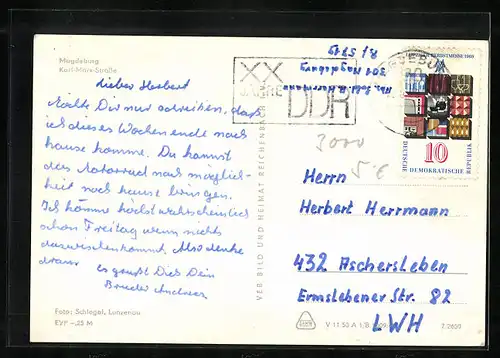 Magdeburg
Karl-Marx-Straße
Lieber Herbert
Möchte Dir nur schreiben, daß
ich dieses Wochenende nach
hause komme. Du kannst
das Motorrad nach möglich-
keit nach hause bringen.
Ich komme höchstwahrscheinlich
schon Freitag wenn nichts
dazwischenkommt. Also denke
dran
es grüßt Dich Dein
Bruder Andreas
Foto: Schlegel, Lunzenau
EVP -,25 M
VEB BILD UND HEIMAT REICHENBACH
XX
JAHRE
DDR
301 Magdeburg
1969
10
DEUTSCHE
DEMOKRATISCHE
REPUBLIK
3000
5 €
Herrn
Herbert Herrmann
432 Aschersleben
Ermslebener Str. 82
LWH
V 11 50 A 1/B